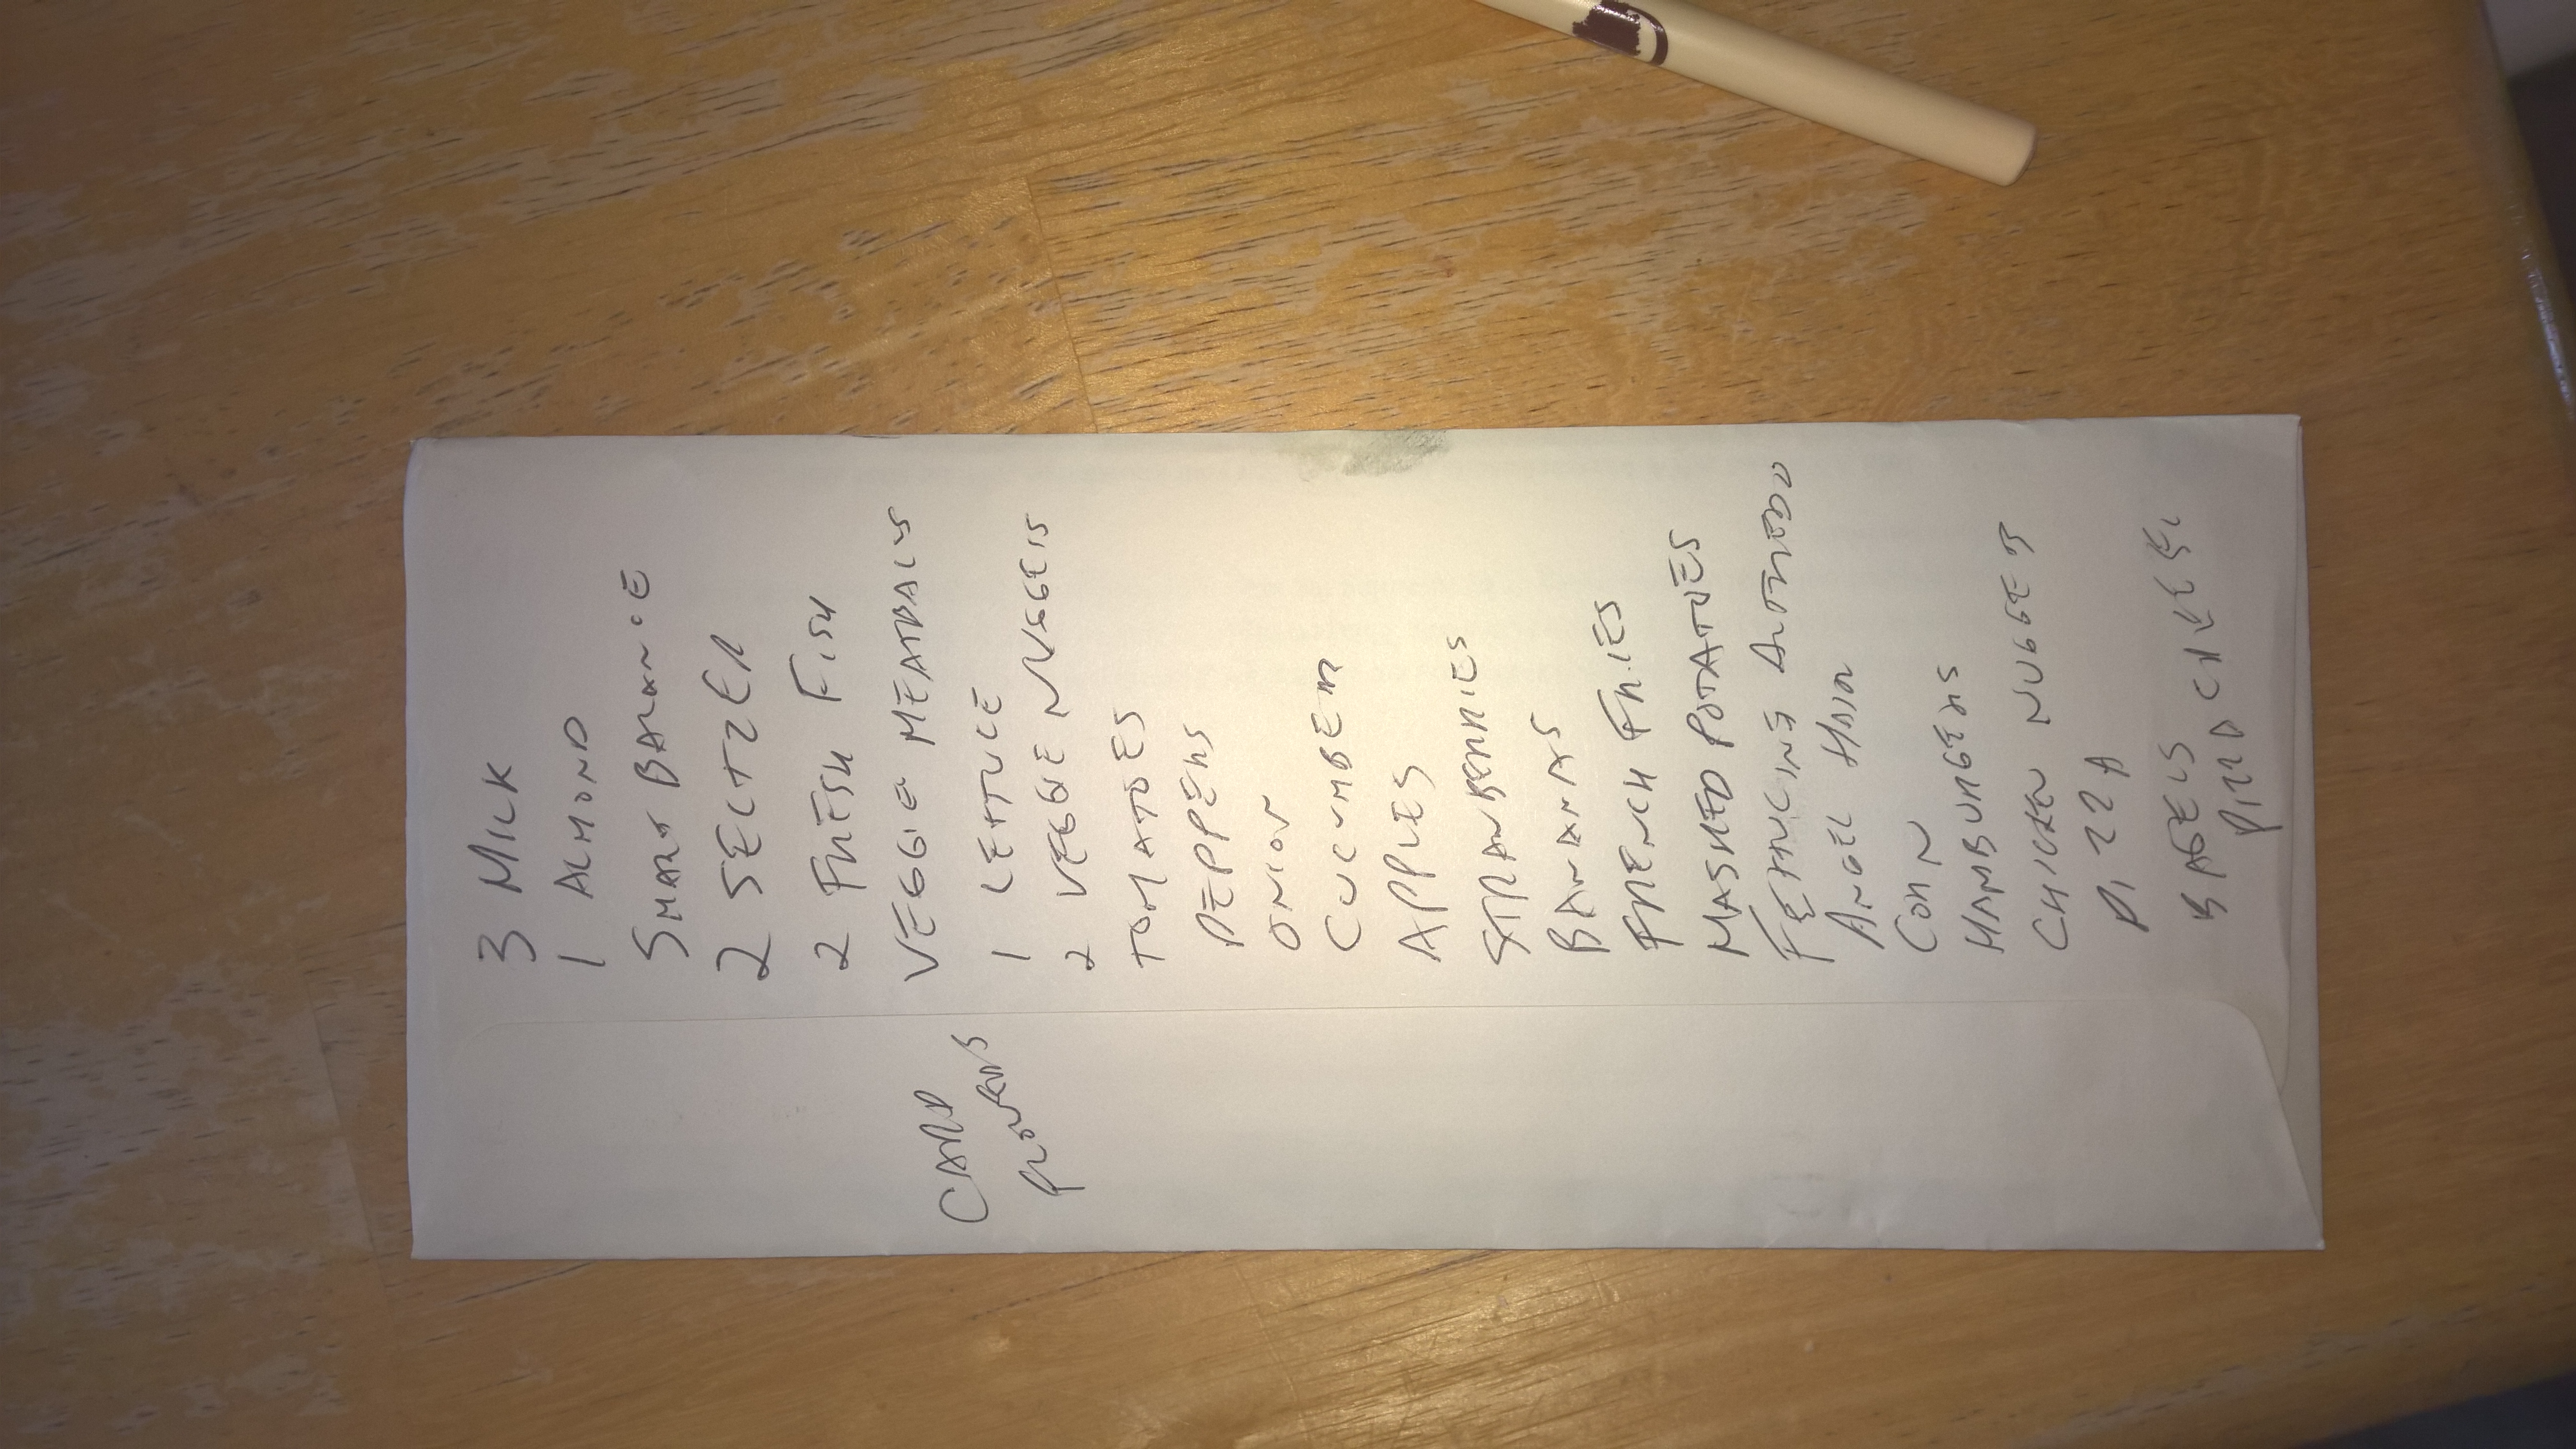 3 MILK
1 ALMOND
SMART BALANCE
2 SELTZER
2 FRESH FISH
VEGGIE MEATBALLS
1 LETTUCE
2 VEGGIE NUGGETS
TOMATOES
PEPPERS
ONION
CUCUMBER
APPLES
STRAWBERRIES
BANANAS
FRENCH FRIES
MASHED POTATOES
FETTUCINE ALFREDO
ANGEL HAIR
CORN
HAMBURGERS
CHICKEN NUGGETS
PIZZA
BAGELS
CHEESE
CARD
FLOWERS